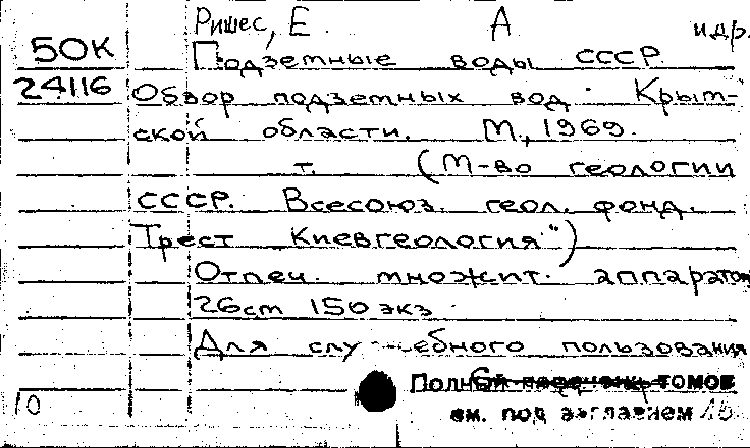 Ришес, Е. А и др.
50К Подземные воды СССР.
24116 Обзор подземных вод. Крым-
ской области. М., 1969.
т. (М-во геологии
СССР. Всесоюз. геол. фонд.
Трест Киевгеология")
Отпеч. множит. аппаратом
26cm 150 экз.
Для служебного пользования
Полный перечень томов
см. под заглавием
10